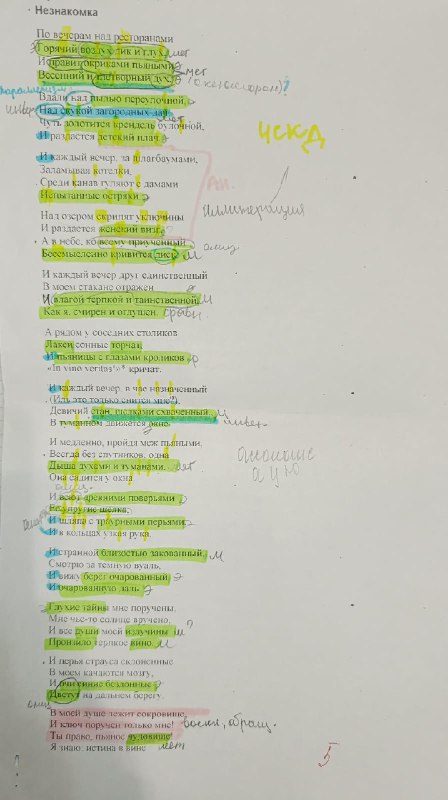 · Незнакомка
По вечерам над ресторанами
Горячий воздух дик и глух, мет
И правит окриками пьяными
Весенний и тлетворный дух. Э (оксюморон)?
Вдали над пылью переулочной,
Над скукой загородных дач,
Чуть золотится крендель булочной, мет
И раздается детский плач.
И каждый вечер, за шлагбаумами,
Заламывая котелки,
Среди канав гуляют с дамами
Испытанные остряки.
Над озером скрипят уключины
И раздается женский визг,
А в небе, ко всему приученный
Бессмысленно кривится диск. М
И каждый вечер друг единственный
В моем стакане отражен
И влагой терпкой и таинственной, М
Как я, смирен и оглушен.
А рядом у соседних столиков
Лакеи сонные торчат,
И пьяницы с глазами кроликов
«In vino veritas!»* кричат.
И каждый вечер, в час назначенный
(Иль это только снится мне?),
Девичий стан, шелками схваченный,
В туманном движется окне.
И медленно, пройдя меж пьяными,
Всегда без спутников, одна
Дыша духами и туманами, мет
Она садится у окна
И веют древними поверьями
Ее упругие шелка,
И шляпа с траурными перьями,
И в кольцах узкая рука.
И странной близостью закованный, М
Смотрю за темную вуаль,
И вижу берег очарованный Э
И очарованную даль.
Глухие тайны мне поручены,
Мне чье-то солнце вручено,
И все души моей излучины М?
Пронзило терпкое вино. М
И перья страуса склоненные
В моем качаются мозгу,
И очи синие бездонные
Цветут на дальнем берегу.
В моей душе лежит сокровище,
И ключ поручен только мне! восклиц, обращ.
Ты право, пьяное чудовище!
Я знаю: истина в вине мет
ЧСКД
5